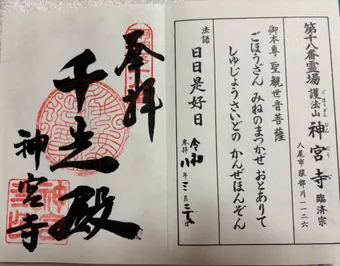 第十八番霊場 護法山 神宮寺 臨済宗
ごほうざん じんぐうじ
八尾市服部川一一二六
御本尊 聖観世音菩薩
ごほうざん みねのまつかぜ おとありて
しゅじょうさいどの かんぜほんぞん
法語 日日是好日
令和
参拝 八年 三月
奉拝
千光殿
神宮寺